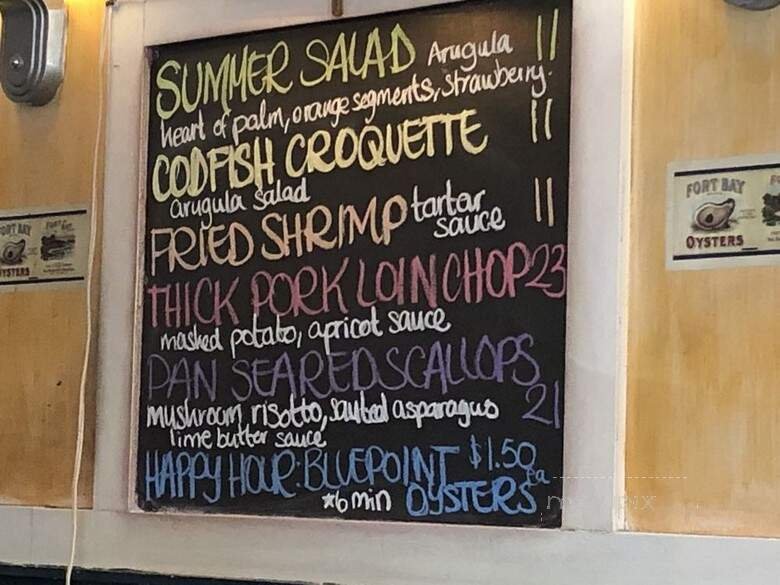 SUMMER SALAD Arugula 11
heart of palm, orange segments, strawberry.
CODFISH CROQUETTE 11
arugula salad
FRIED SHRIMP tartar sauce 11
THICK PORK LOIN CHOP 23
mashed potato, apricot sauce
PAN SEARED SCALLOPS 21
mushroom risotto, sauted asparagus
lime butter sauce
HAPPY HOUR: BLUEPOINT $1.50 ea
*6 min OYSTERS
FORT BAY
OYSTERS